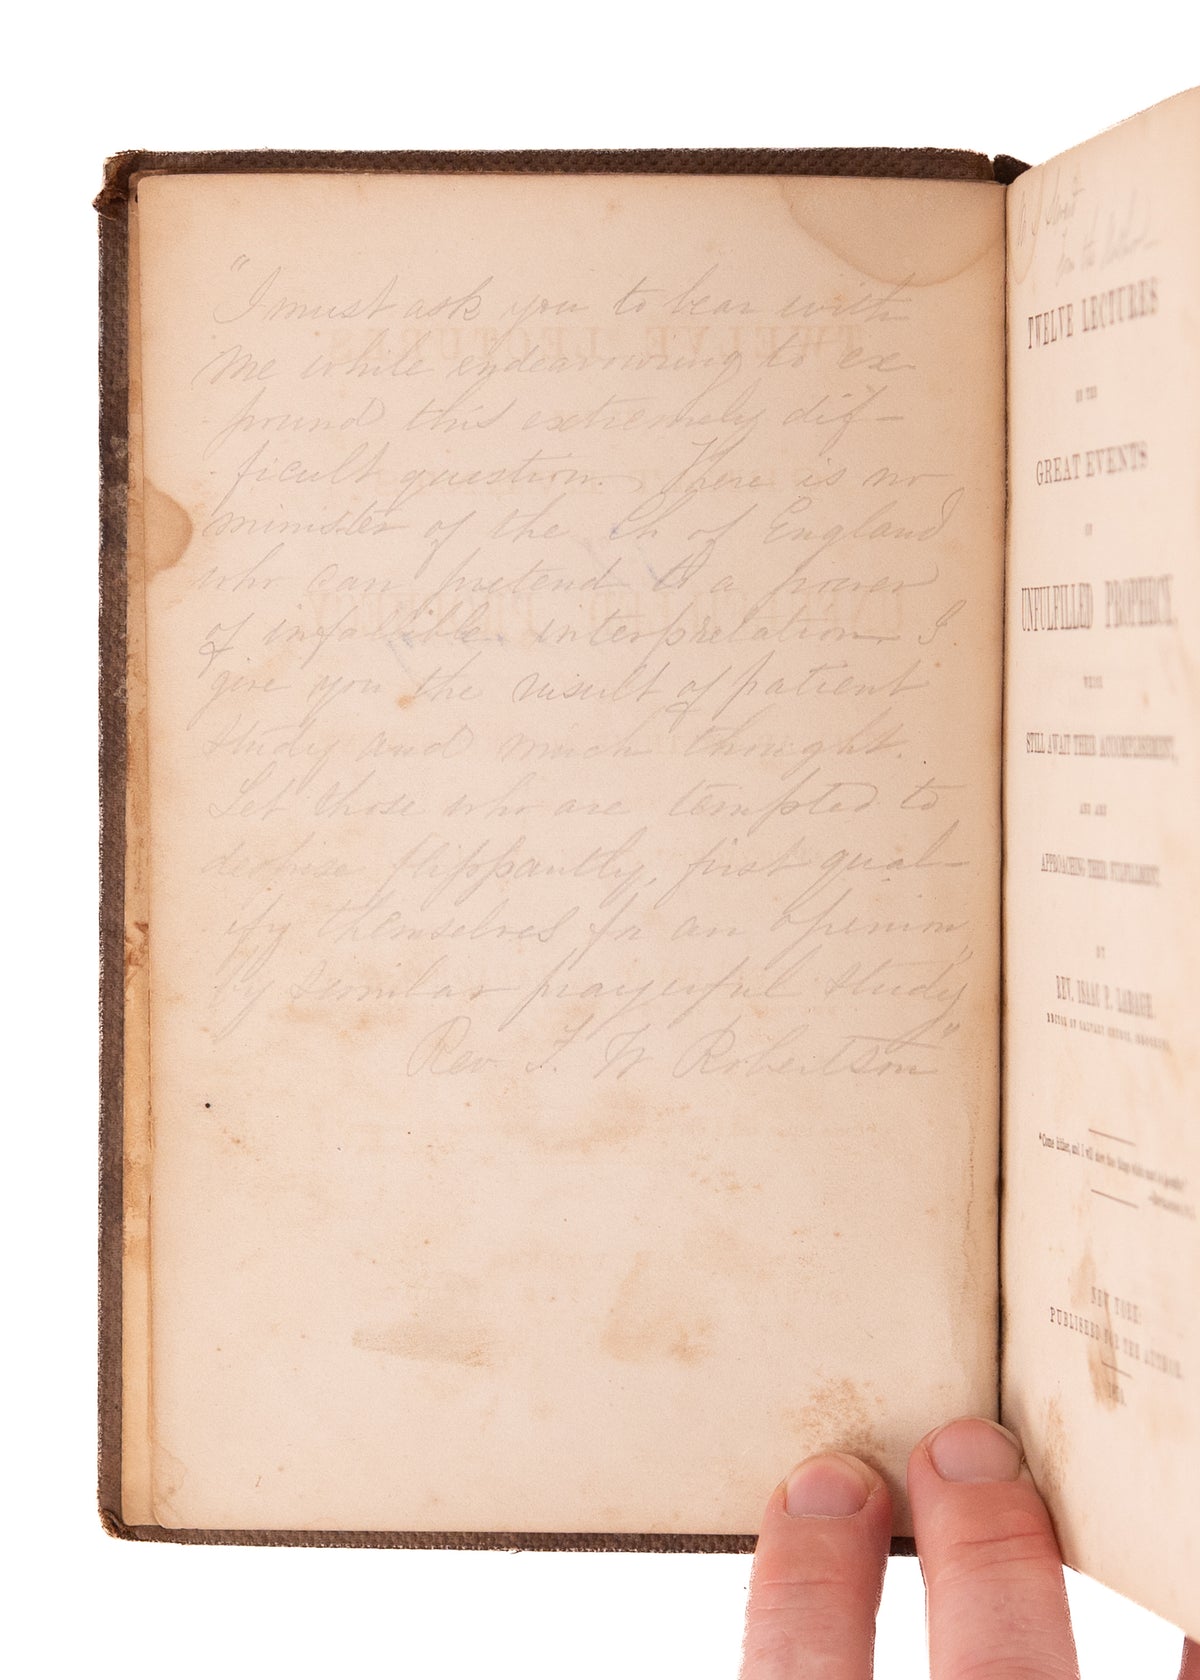 "I must ask you to bear with
me while endeavouring to ex-
pound this extremely dif-
ficult question. There is no
minister of the Ch of England
who can pretend to a power
of infallible interpretation. I
give you the result of patient
study and much thought.
Let those who are tempted to
despise flippantly, first qual-
ify themselves for an opinion,
by similar prayerful study"
Rev. F. W. Robertson"
from the Author
TWELVE LECTURES
ON THE
GREAT EVENTS
OF
UNFULFILLED PROPHECY,
WHICH
STILL AWAIT THEIR ACCOMPLISHMENT,
AND ARE
APPROACHING THEIR FULFILLMENT.
BY
REV. ISAAC P. LABAGH.
RECTOR OF CALVARY CHURCH, BROOKLYN,
"Come hither, and I will show thee things which must be hereafter."
NEW YORK:
PUBLISHED FOR THE AUTHOR.